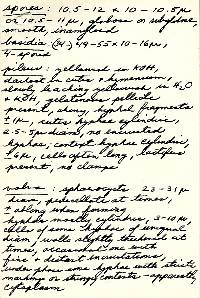 spores: 10.5-12 x 10-10.5µ
or 10.5-11µ, globose or subglobose,
smooth, inamyloid
basidia: 49-55 x 10-16µ,
4-spored
pileus: yellowed in KOH,
darkest in cutis + hymenium,
slowly leaching yellowed in H2O
+ KOH, gelatinous pellicle
present, shiny, hyphal fragments
±1µ, cutis hyphae cylindric,
2.5-5µ diam, no encrusted
hyphae; context hyphae cylindric,
±6µ, cells often long, lactifers
present, no clamps
volva: sphaerocysts 23-31µ
diam, pedicellate at times,
along when forming
hyphae mostly cylindric, 3-10µ,
cells of some hyphae of unequal
diam, walls slightly thickened at
times, occasional one with
fine + distant encrustations,
under phase some hyphae with striate
markings or strongly contents - apparently
cytoplasm